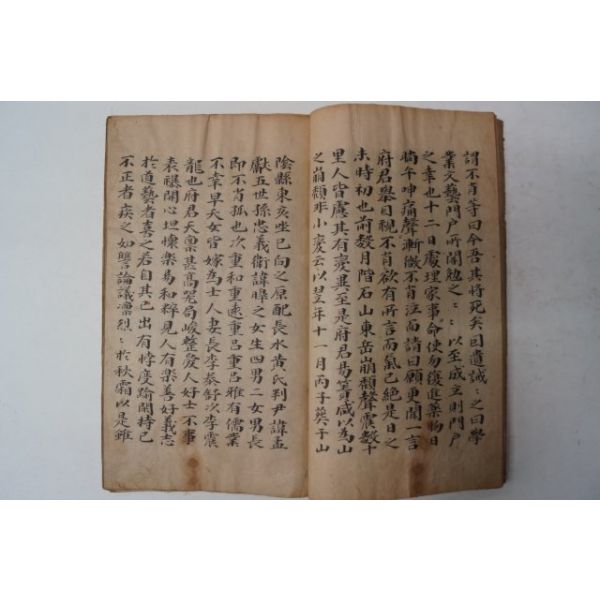 謂不肖等曰今吾其將死矣因遺誡〻之曰學
業文藝門戶所關勉之〻〻以至成立則門戶
之幸也十二日處理家事命使勿復進藥物日
晌午呻痛聲漸微不肖注面請曰願更聞一言
府君擧目視不肖欲有所言而氣已絶是日之
未時初也前數月階石山東岳崩頹聲震數十
里人皆慮其有變異至是府君易簀咸以為山
之崩頹非小變云以翌年十一月丙子葬于山
陰縣東亥坐巳向之原配長水黃氏判尹諱孟
獻五世孫忠義衛諱暐之女生四男二女男長
即不肖孤也次重和重遠重呂重呂雅有儒業
不幸早夭女皆嫁為士人妻長李泰舒次李震
龍也府君天稟甚高器局峻整愛人好士不事
表襮開心坦懷樂易和粹見人有樂善好義志
於道藝者喜之若自其己出有悖度踰閑持己
不正者疾之如讐論議凛烈〻於秋霜以是雖